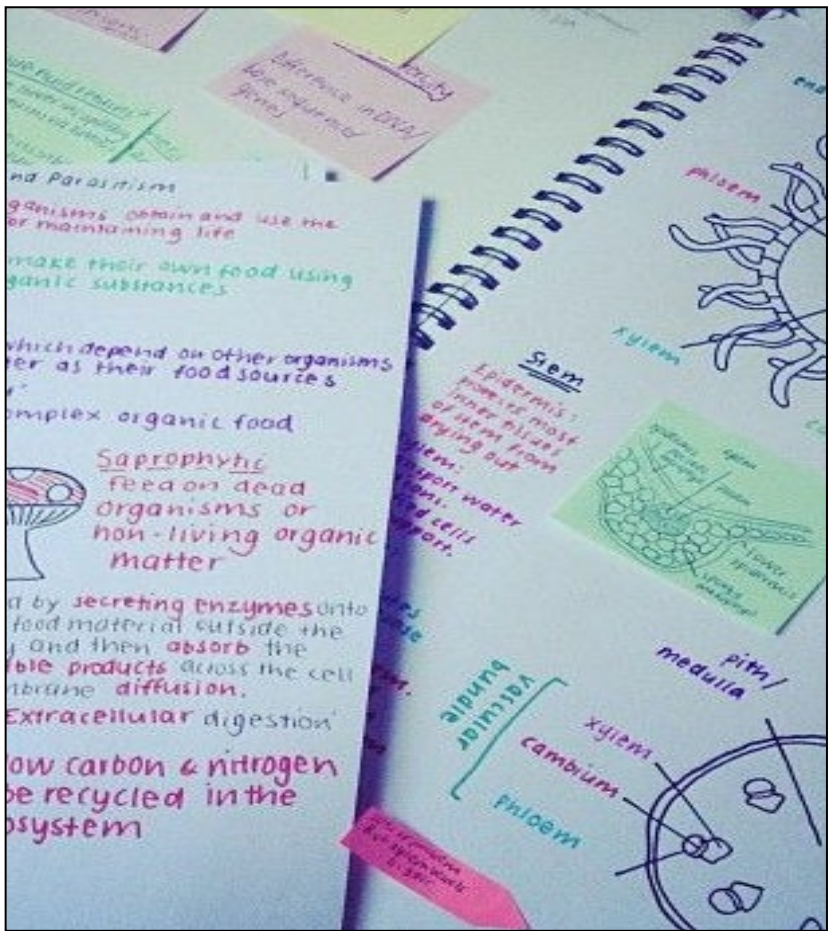 Difference in DNA/
base sequences/
genes
and Parasitism
ganisms obtain and use the
or maintaining life
make their own food using
ganic substances
which depend on other organisms
er as their food sources
omplex organic food
Saprophytic
feed on dead
organisms or
non-living organic
matter
d by secreting enzymes onto
food material outside the
y and then absorb the
ible products across the cell
mbrane diffusion.
Extracellular digestion'
ow carbon & nitrogen
be recycled in the
osystem
phloem
xylem
Stem
Epidermis:
protects most
inner tissues
of stem from
drying out
nsport water
ions.
cells
pport.
lower
epidermis
spongy
pith/
medulla
vascular
bundle
xylem
cambium
phloem